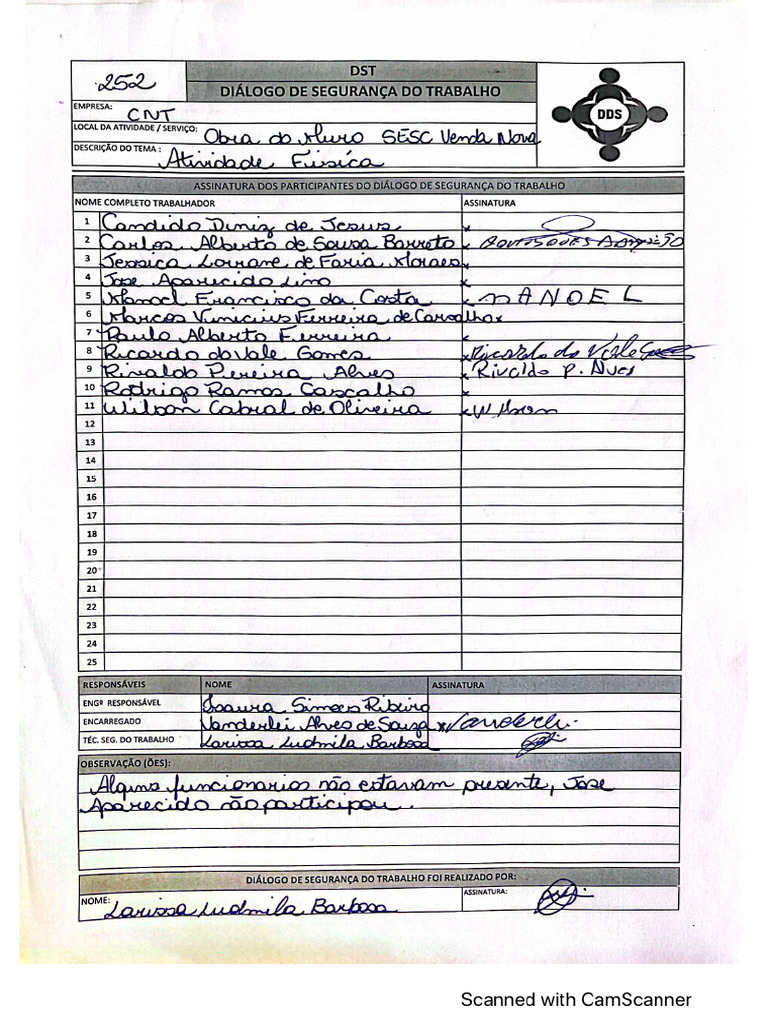 252
DST
DIÁLOGO DE SEGURANÇA DO TRABALHO
EMPRESA: CNT
LOCAL DA ATIVIDADE / SERVIÇO: Obra do Muro SESC Venda Nova
DESCRIÇÃO DO TEMA: Atividade Física
DDS
ASSINATURA DOS PARTICIPANTES DO DIÁLOGO DE SEGURANÇA DO TRABALHO
NOME COMPLETO TRABALHADOR ASSINATURA
1 Candido Diniz de Jesus x
2 Carlos Alberto de Sousa Barroto x
3 Jessica Lorrane de Faria Moraes x
4 Jose Aparecido Lino x
5 Manoel Francisco da Costa x MANOEL
6 Marcos Vinicius Ferreira de Carvalho x
7 Paulo Alberto Ferreira x
8 Ricardo do Vale Gomes x Ricardo do Vale
9 Rivaldo Pereira Alves x Rivaldo P. Alves
10 Rodrigo Ramos Cascalho x
11 Wilson Cabral de Oliveira x Wilson
12
13
14
15
16
17
18
19
20
21
22
23
24
25
RESPONSÁVEIS NOME ASSINATURA
ENGº RESPONSÁVEL Isaura Simoes Ribeiro
ENCARREGADO Vanderlei Alves de Souza x Vanderlei
TÉC. SEG. DO TRABALHO Larissa Ludmila Barbosa
OBSERVAÇÃO (ÕES):
Alguns funcionarios não estavam presente, Jose
Aparecido não participou.
DIÁLOGO DE SEGURANÇA DO TRABALHO FOI REALIZADO POR:
NOME: Larissa Ludmila Barbosa ASSINATURA:
Scanned with CamScanner